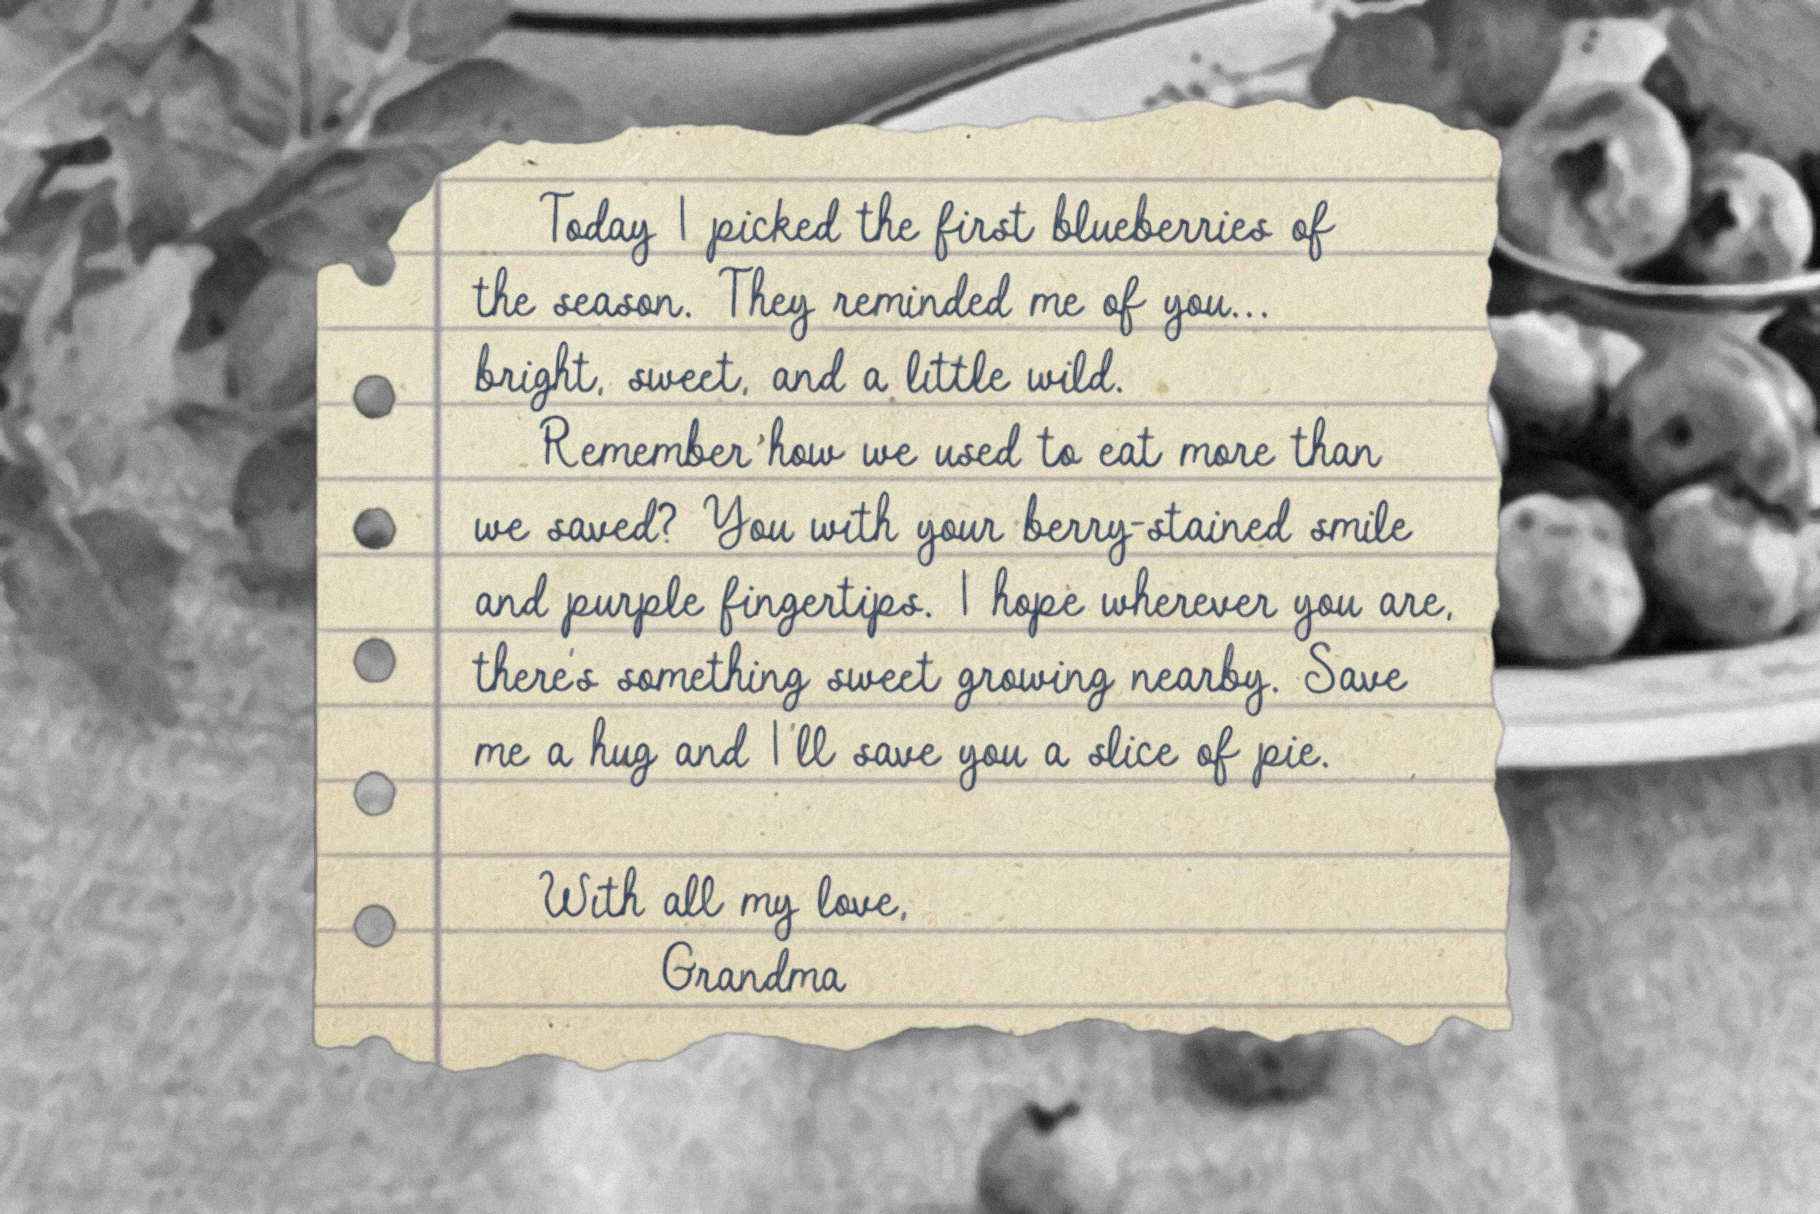 Today I picked the first blueberries of
the season. They reminded me of you...
bright, sweet, and a little wild.
Remember how we used to eat more than
we saved? You with your berry-stained smile
and purple fingertips. I hope wherever you are,
there's something sweet growing nearby. Save
me a hug and I'll save you a slice of pie.
With all my love,
Grandma